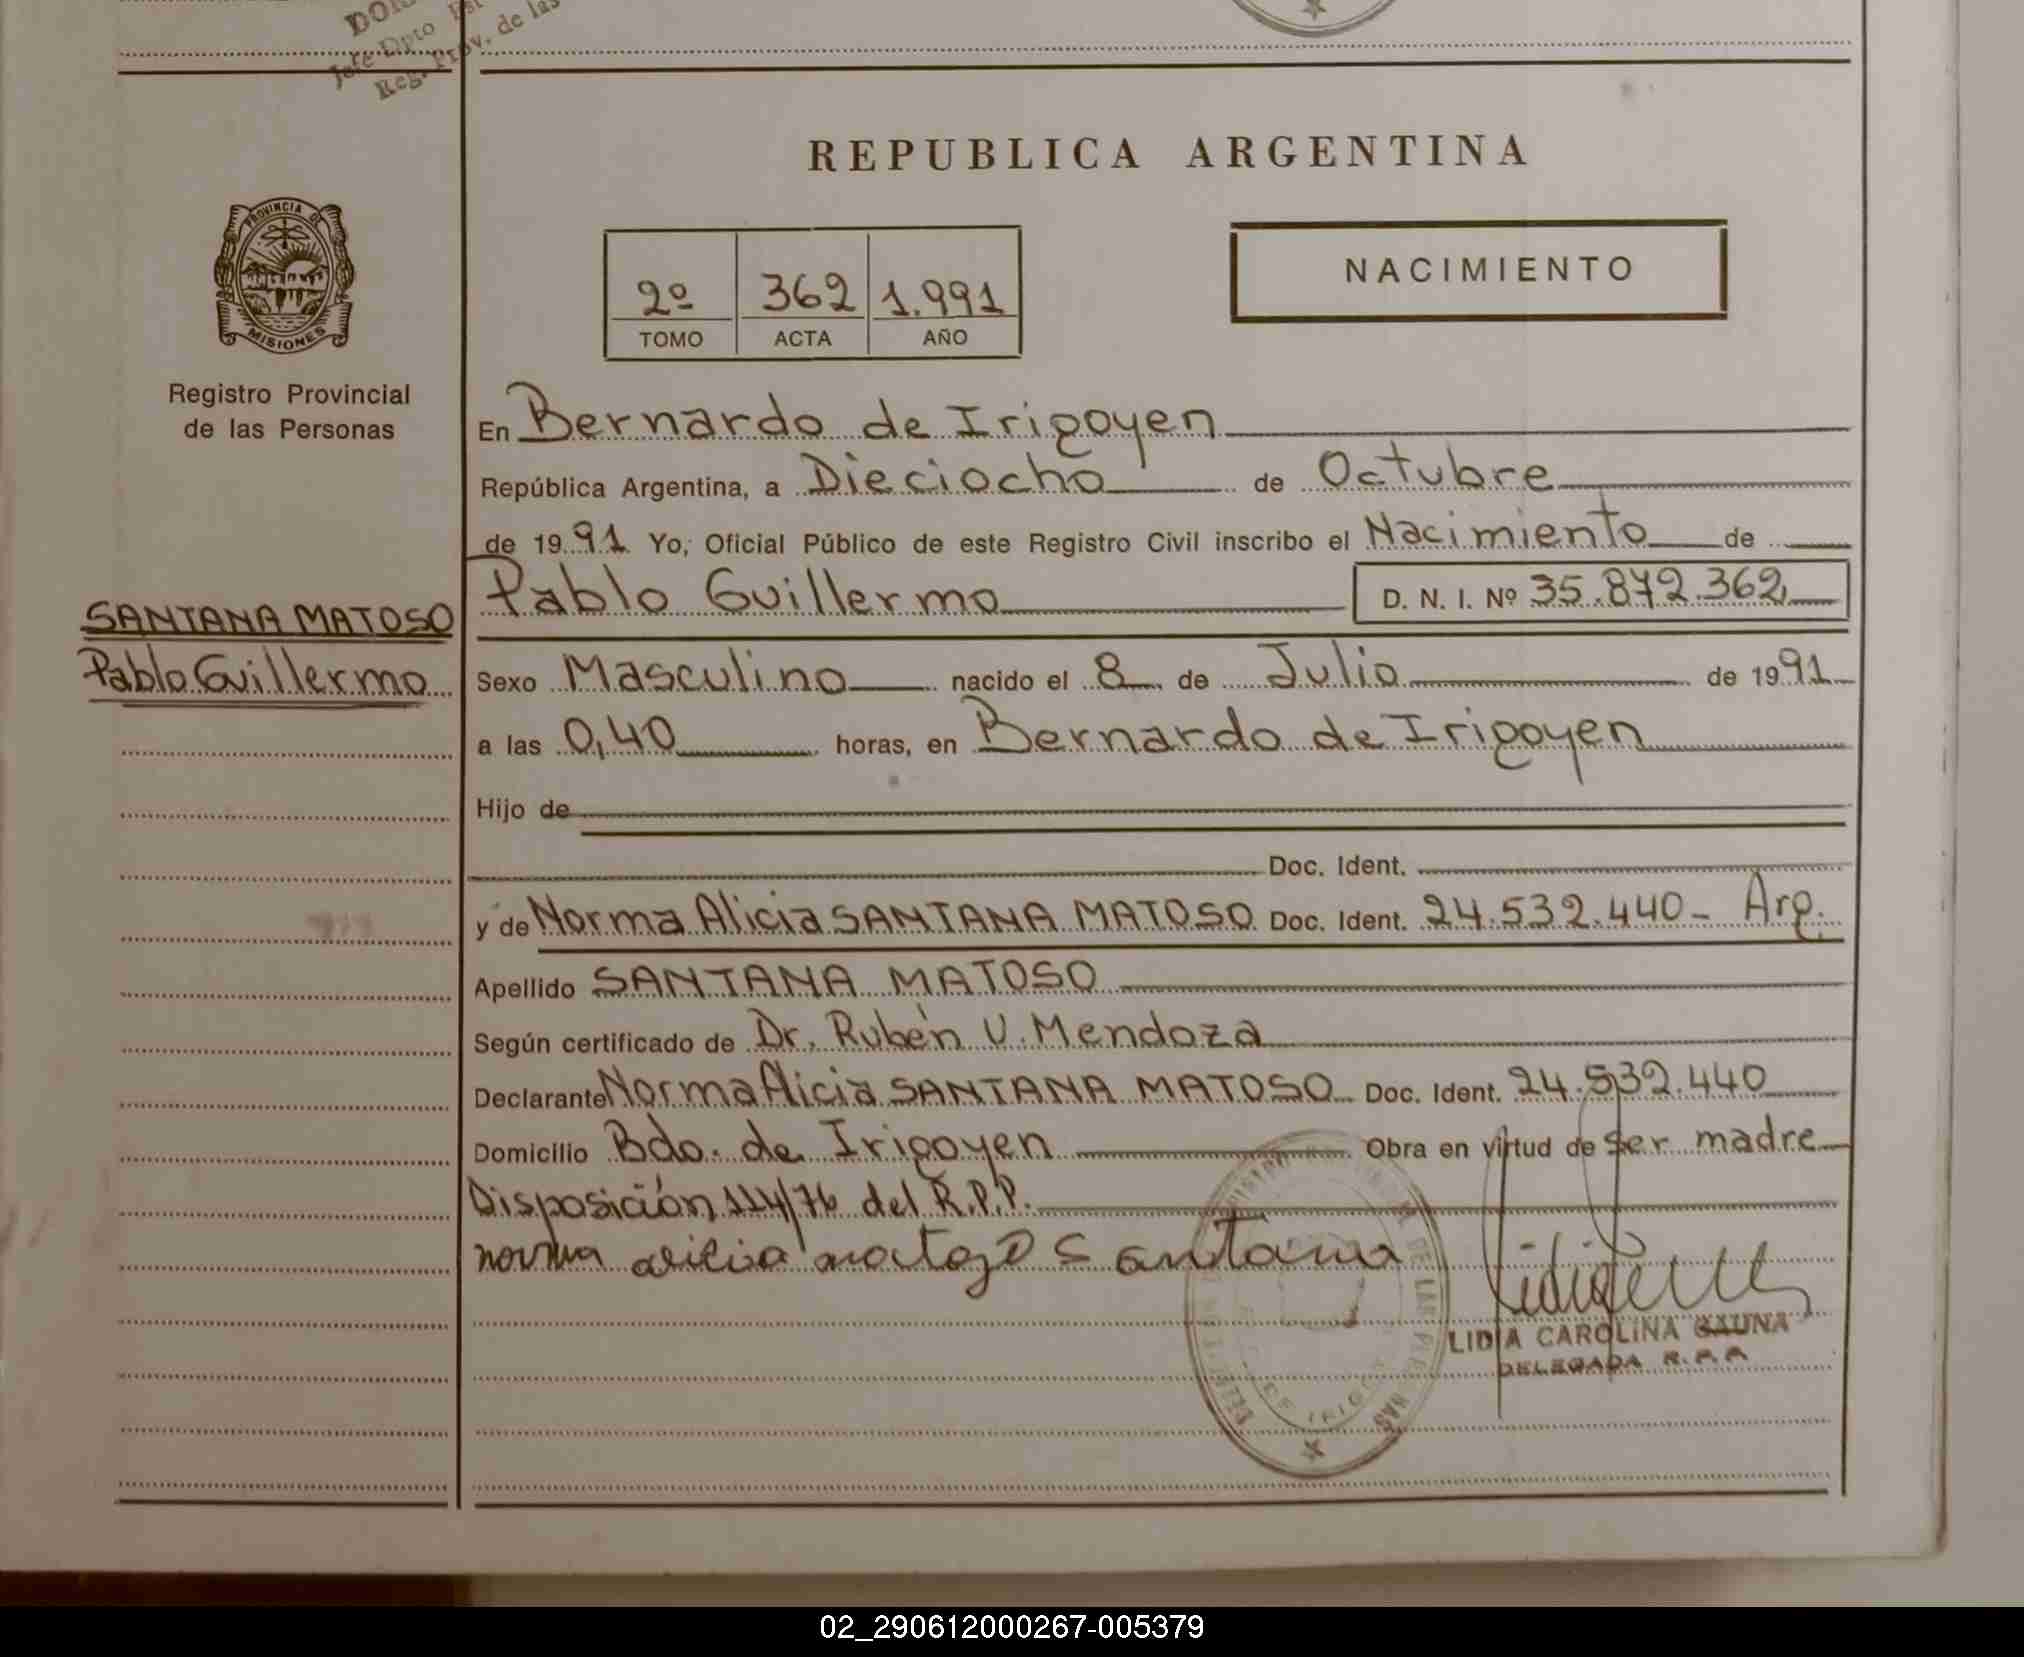 Jefe Dpto
Reg. Prov. de las
REPUBLICA ARGENTINA
PROVINCIA DE
MISIONES
Registro Provincial
de las Personas
2º 362 1.991
TOMO ACTA AÑO
NACIMIENTO
En Bernardo de Irigoyen
República Argentina, a Dieciocho de Octubre
de 1991 Yo, Oficial Público de este Registro Civil inscribo el Nacimiento de
Pablo Guillermo D. N. I. Nº 35.872.362
SANTANA MATOSO
Pablo Guillermo
Sexo Masculino nacido el 8 de Julio de 1991
a las 0,40 horas, en Bernardo de Irigoyen
Hijo de
Doc. Ident.
y de Norma Alicia SANTANA MATOSO Doc. Ident. 24.532.440- Arg.
Apellido SANTANA MATOSO
Según certificado de Dr. Rubén U. Mendoza
Declarante Norma Alicia SANTANA MATOSO Doc. Ident. 24.532.440
Domicilio Bdo. de Irigoyen Obra en virtud de ser madre
Disposición 114/76 del R.P.P.
norma alicia matozo Santana
LIDIA CAROLINA GAUNA
DELEGADA R.P.P.
02_290612000267-005379